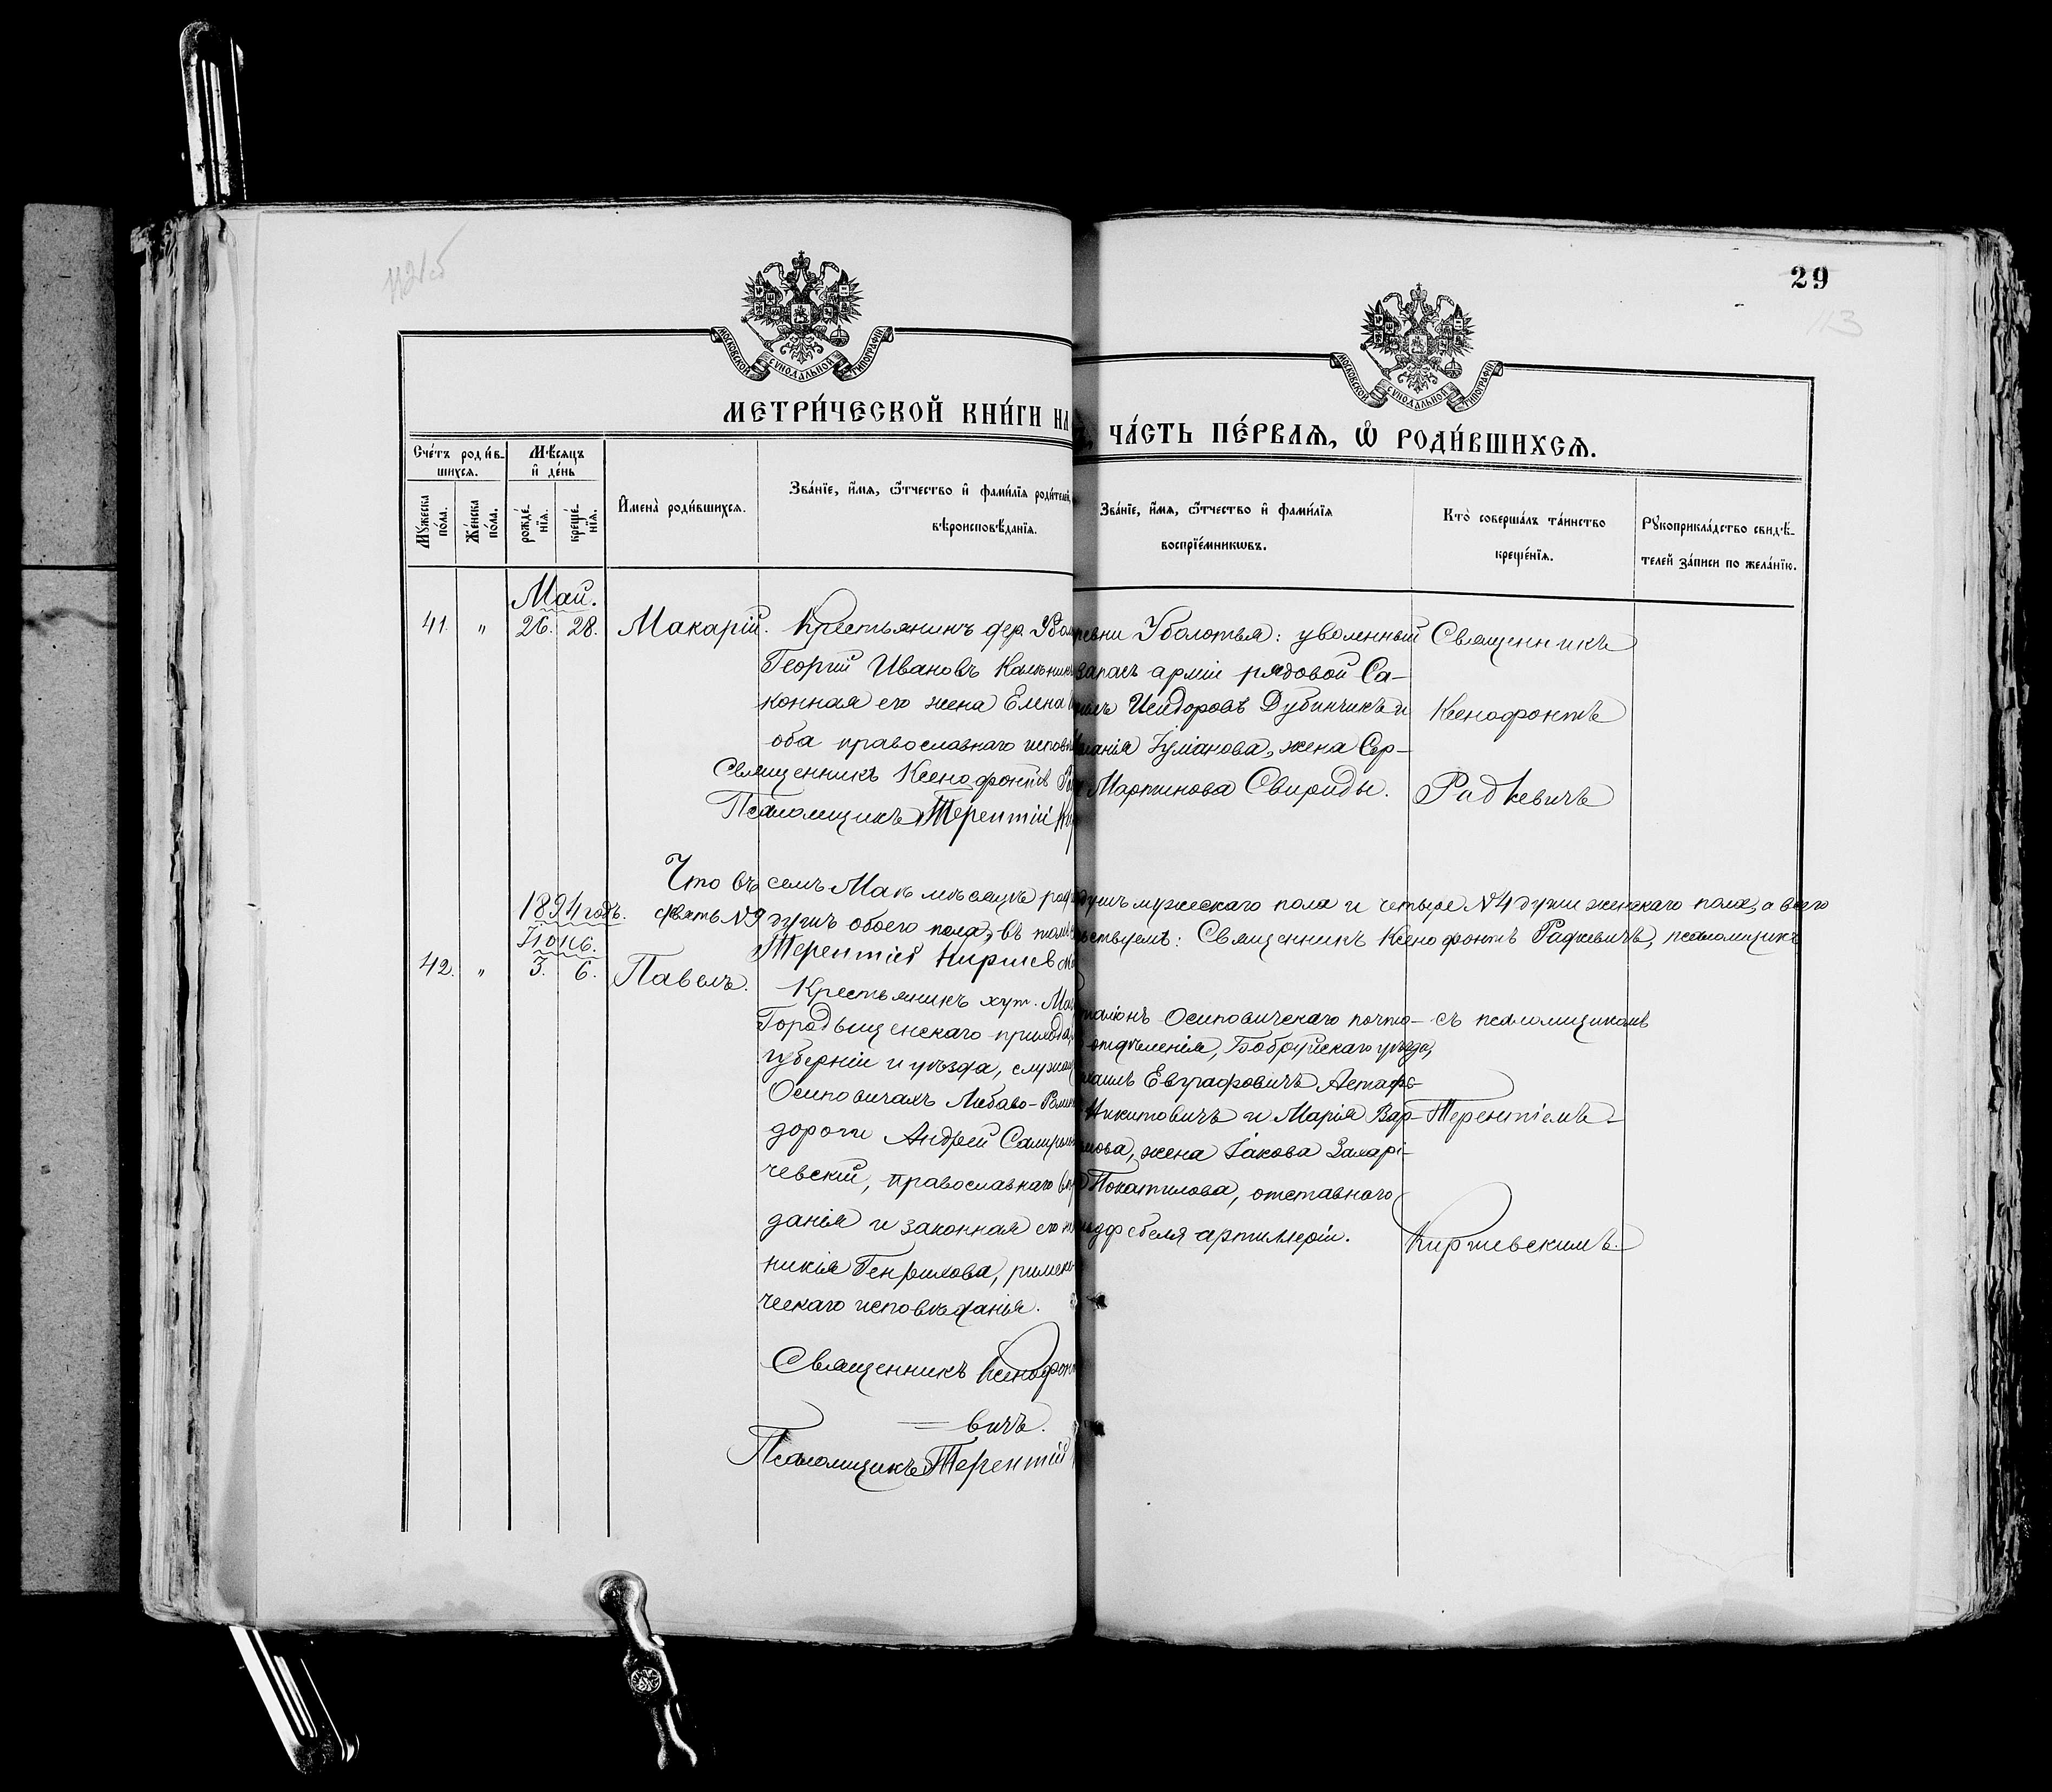 29
113
МОСКОВСКОЙ СУНОДАЛЬНОЙ ТИПОГРАФІИ
МОСКОВСКОЙ СУНОДАЛЬНОЙ ТИПОГРАФІИ
МЕТРИ́ЧЕСКОЙ КНИ́ГИ НА
ЧА́СТЬ ПЕ́РВАѦ, Ѡ҆ РОДИ́ВШИХСѦ.
Сче́тъ роди́в-
шихсѧ.
Мꙋ́жеска
по́ла.
Же́нска
по́ла.
Мѣ́сѧцъ
и҆ де́нь
рожде́-
нїѧ.
креще́-
нїѧ.
И҆мена̀ роди́вшихсѧ.
Зва́нїе, и҆́мѧ, ѻ҆́тчество и҆ фами́лїѧ роди́телей,
вѣроисповѣ́данїѧ.
Зва́нїе, и҆́мѧ, ѻ҆́тчество и҆ фами́лїѧ
воспрїе́мникѡвъ.
Кто̀ соверша́лъ та́инство
креще́нїѧ.
Рꙋкоприкла́дство свидѣ́-
телей за́писи по жела́нїю.
Май.
41. " 26. 28. Макарій.
Крестьянинъ дер.
Георгій Ивановъ
конная его жена Елена
оба православнаго исповѣ
Священникъ Ксенофонтъ
Псаломщикъ Терентій
ревни Уболотья: уволенный
запасъ арміи рядовой Са-
Исидоровъ Дубинчикъ и
Гуліанова, жена Сер-
Мартинова Свириды.
Священникъ
Ксенофонтъ
Радкевичъ
Что въ семъ Маѣ мѣсяцѣ
душъ мужескаго пола и четыре №4 души женскаго пола, а всего
девять №9 душъ обоего пола, въ томъ
ствуемъ: Священникъ Ксенофонтъ Радкевичъ, псаломщикъ
Терентій Киржев
1894 годъ.
Іюнь.
42. " 3. 6. Павелъ.
Крестьянинъ хут.
Городыщенскаго прихода,
губерніи и уѣзда,
Осиповичахъ Либаво-Ромен
дороги Андрей
чевскій, православнаго
данія и законная его
никія Генрихова, римско
ческаго исповѣданія.
Священникъ Ксенофон
вичъ.
Псаломщикъ Терентій
Осиповичскаго почто-
отдѣленія, Бобруйскаго уѣзда,
Евграфовичъ Астафь-
Никитовичъ и Марія Вар-
мова, жена Іакова Захарі-
Покатилова, отставного
фебеля артиллеріи.
съ псаломщикомъ
Терентіемъ
Киржевскимъ.